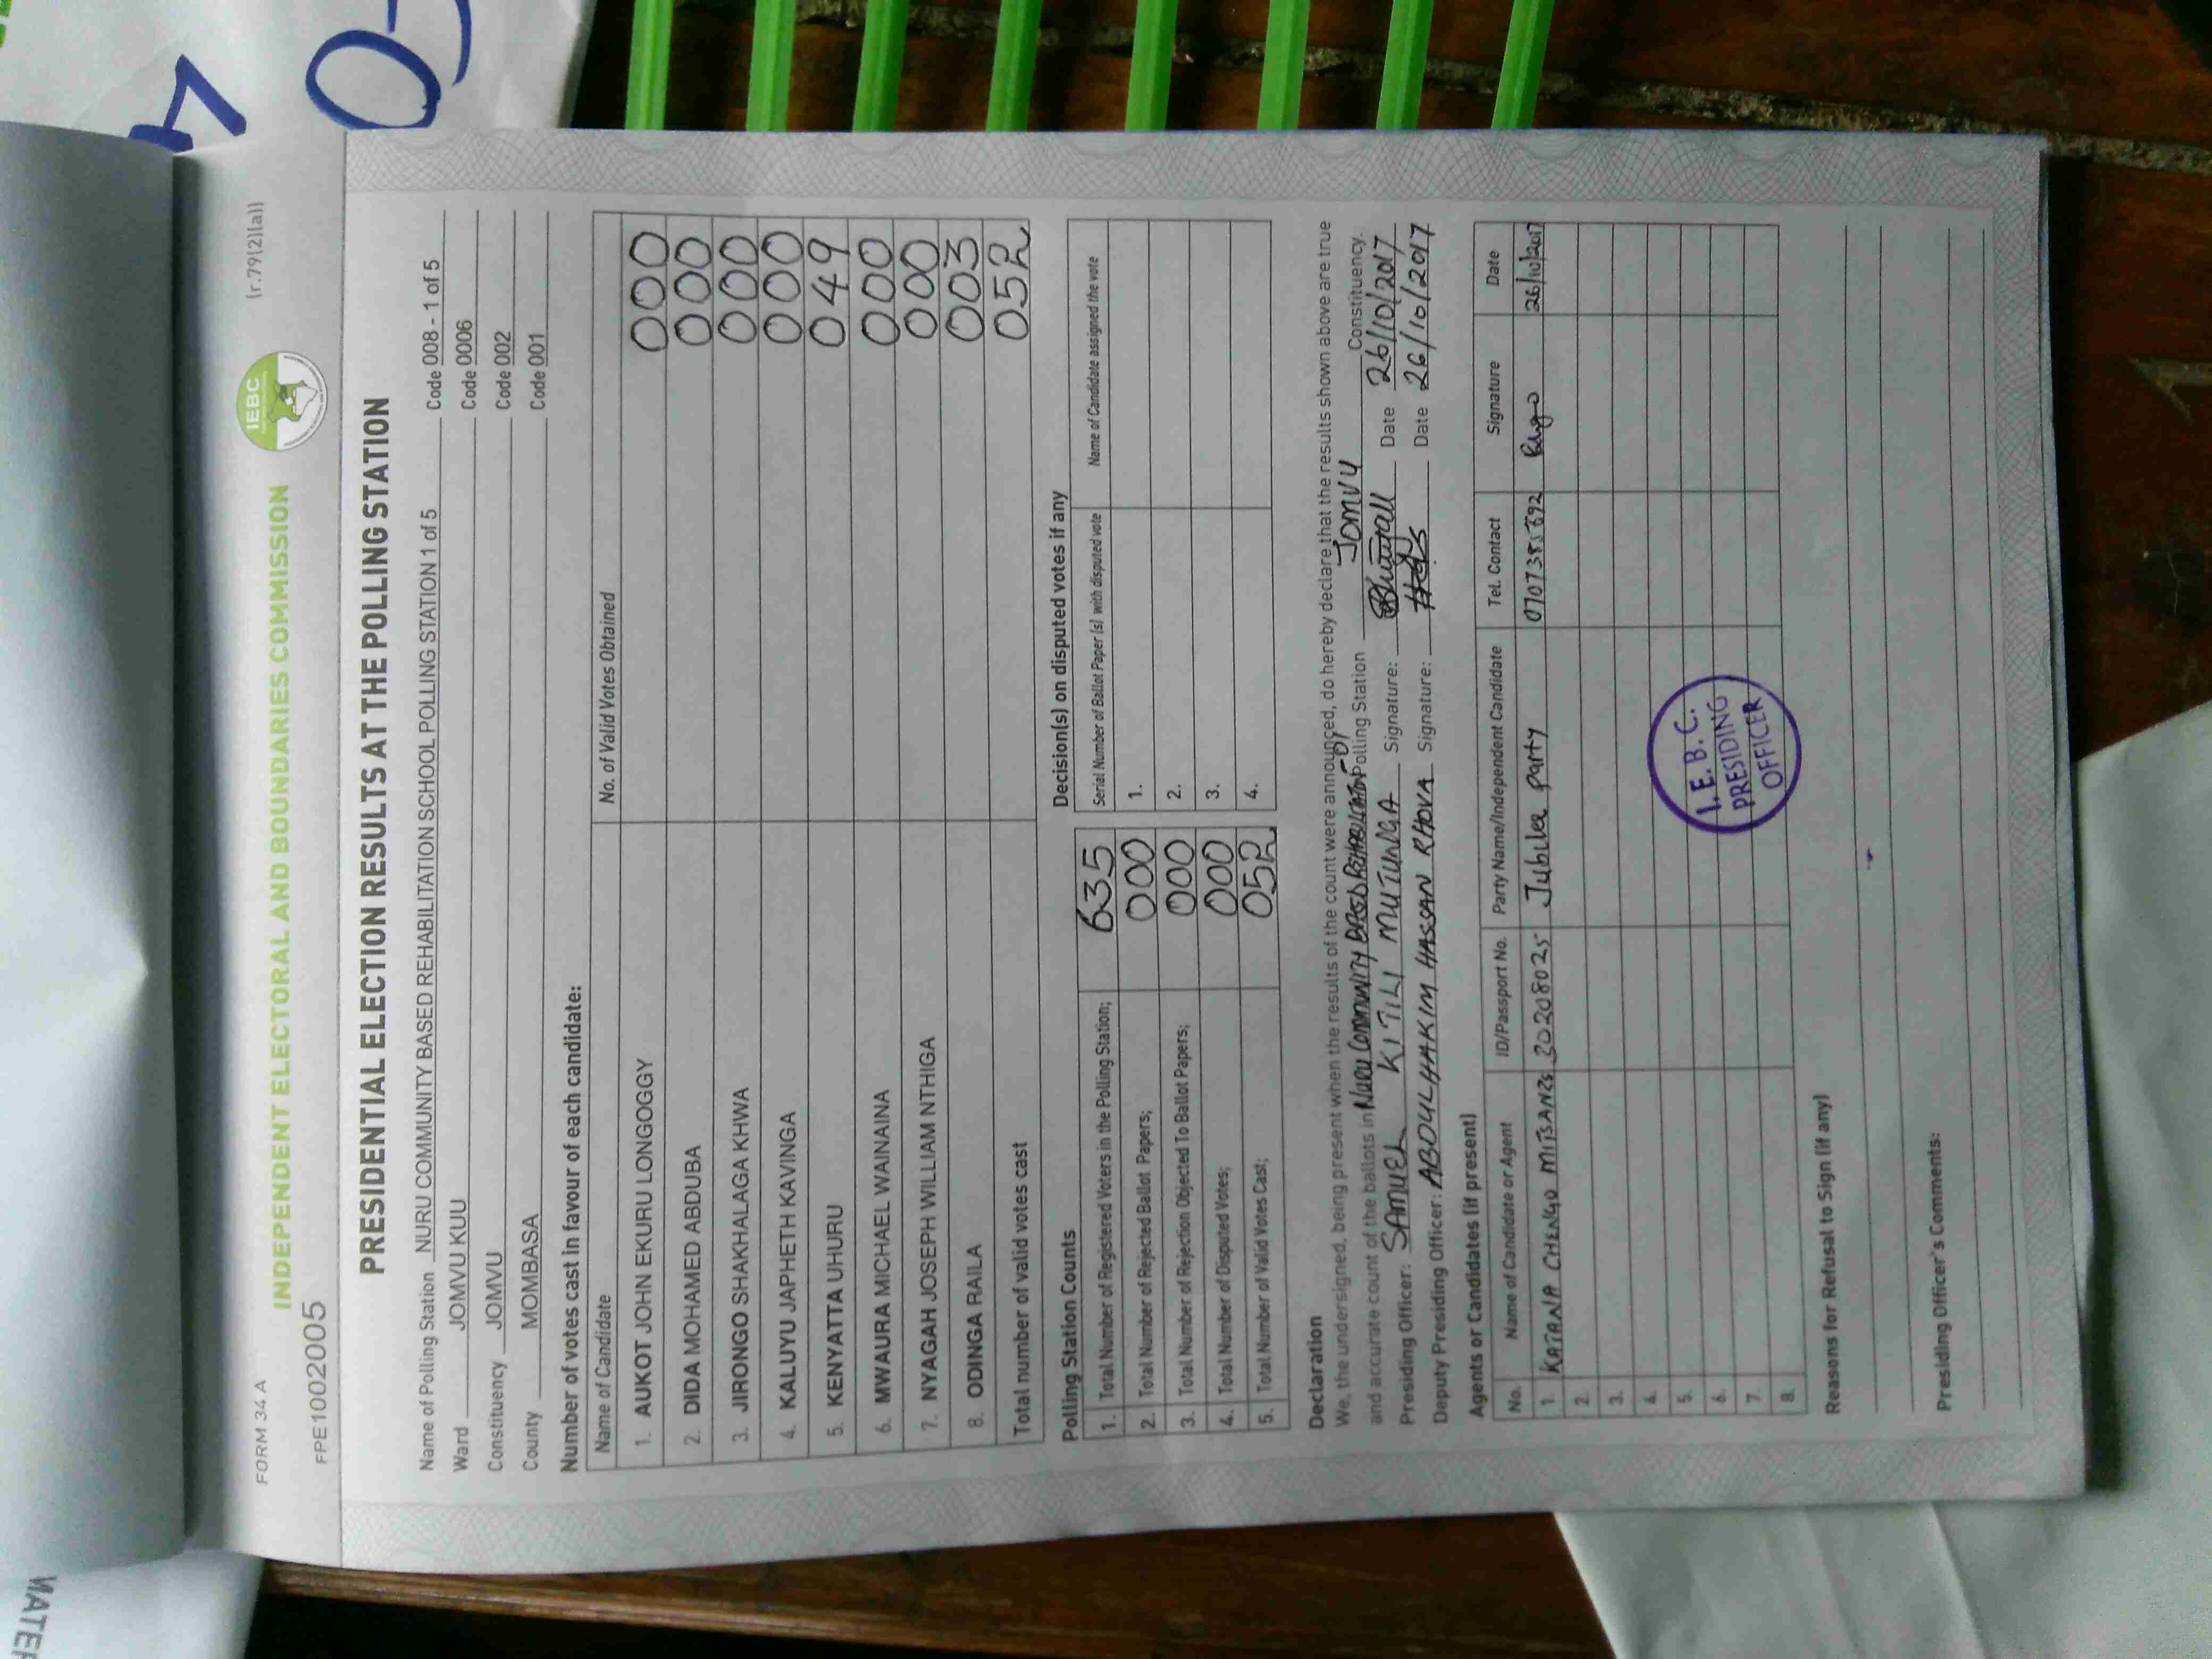 FORM 34 A
(r.79(2)(a))
IEBC
INDEPENDENT ELECTORAL AND BOUNDARIES COMMISSION
FPE1002005
PRESIDENTIAL ELECTION RESULTS AT THE POLLING STATION
Name of Polling Station NURU COMMUNITY BASED REHABILITATION SCHOOL POLLING STATION 1 of 5 Code 008 - 1 of 5
Ward JOMVU KUU Code 0006
Constituency JOMVU Code 002
County MOMBASA Code 001
Number of votes cast in favour of each candidate:
Name of Candidate No. of Valid Votes Obtained
1. AUKOT JOHN EKURU LONGOGGY 000
2. DIDA MOHAMED ABDUBA 000
3. JIRONGO SHAKHALAGA KHWA 000
4. KALUYU JAPHETH KAVINGA 000
5. KENYATTA UHURU 049
6. MWAURA MICHAEL WAINAINA 000
7. NYAGAH JOSEPH WILLIAM NTHIGA 000
8. ODINGA RAILA 003
Total number of valid votes cast 052
Polling Station Counts
1. Total Number of Registered Voters in the Polling Station; 635
2. Total Number of Rejected Ballot Papers; 000
3. Total Number of Rejection Objected To Ballot Papers; 000
4. Total Number of Disputed Votes; 000
5. Total Number of Valid Votes Cast; 052
Decision(s) on disputed votes if any
Serial Number of Ballot Paper (s) with disputed vote Name of Candidate assigned the vote
1.
2.
3.
4.
Declaration
We, the undersigned, being present when the results of the count were announced, do hereby declare that the results shown above are true
and accurate count of the ballots in NURU COMMUNITY BASED REHABILITATION Polling Station JOMVU Constituency.
Presiding Officer: SAMUEL KITILI MUTUNGA Signature: Date 26/10/2017
Deputy Presiding Officer: ABDULHAKIM HASSAN RHOVA Signature: Date 26/10/2017
Agents or Candidates (if present)
No. Name of Candidate or Agent ID/Passport No. Party Name/Independent Candidate Tel. Contact Signature Date
1. KATANA CHENGO 30208025 Jubilee Party 26/10/2017
2.
3.
4.
5.
6.
7.
8.
I.E.B.C.
PRESIDING
OFFICER
Reasons for Refusal to Sign (if any)
Presiding Officer's Comments: